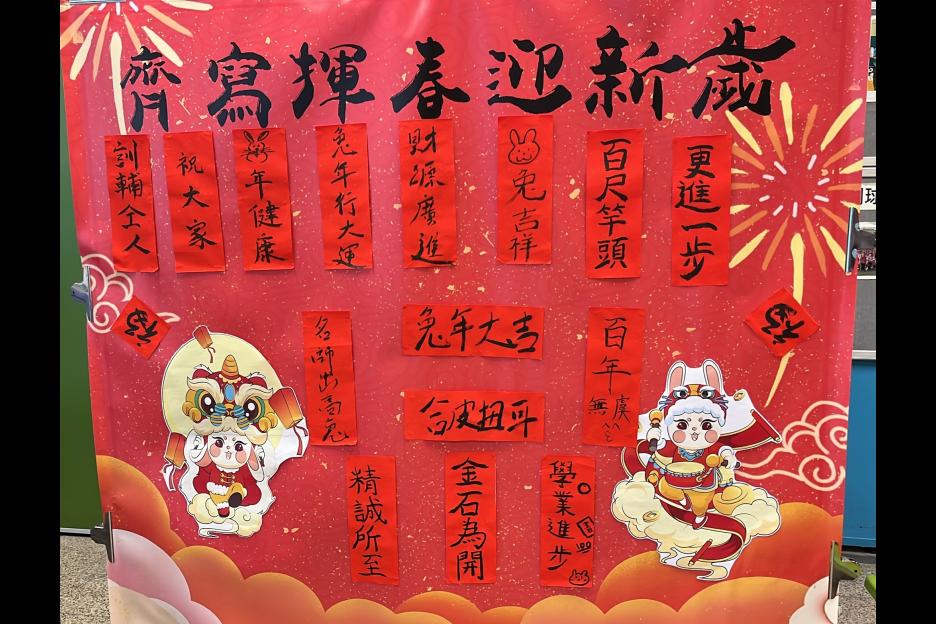 齊寫揮春迎新歲
訓輔仝人
祝大家
年健康
兔年行大運
財源廣進
兔吉祥
百尺竿頭
更進一步
福
福
名師出高兔
兔年大吉
百年無虞
合皮扭耳
精誠所至
金石為開
學業進步